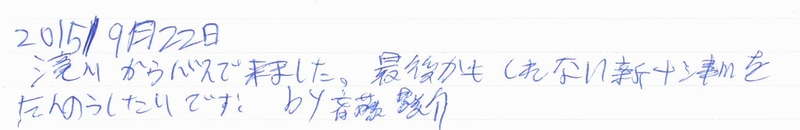 2015/9月22日
滝川からバスで来ました。最後かもしれない新十津川を
たんのうしたいです! by 斉藤 駿介